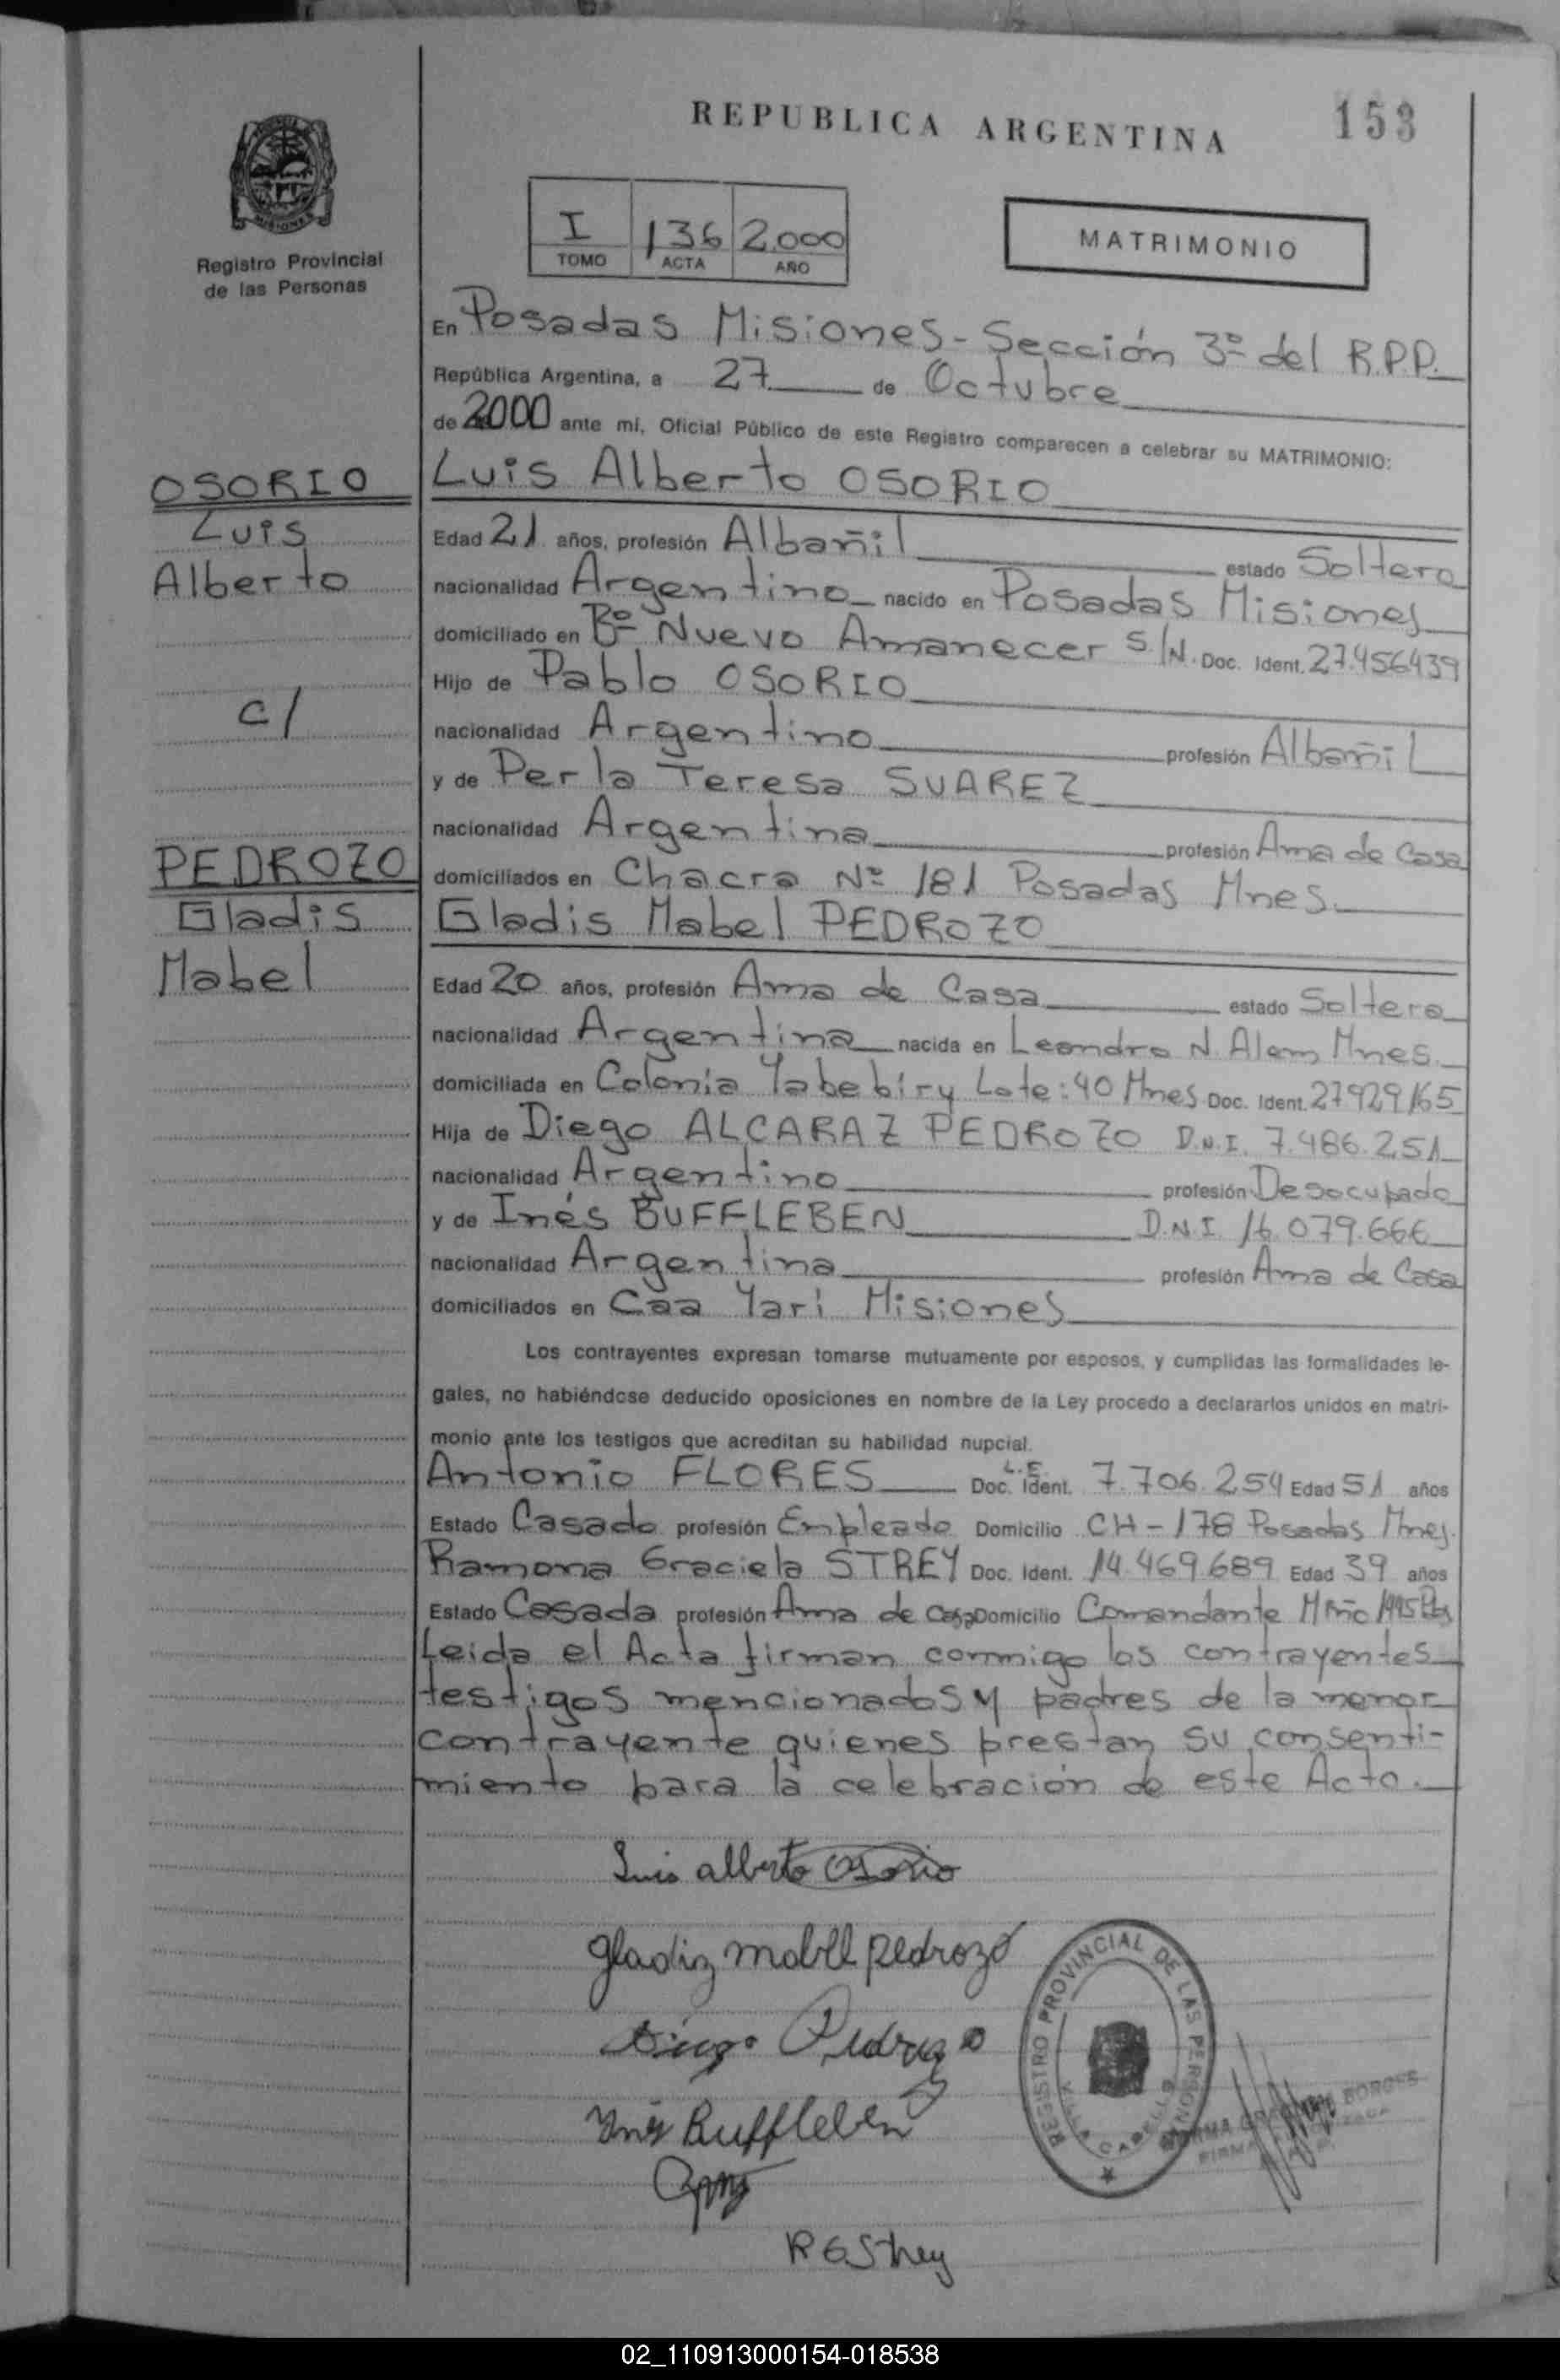 REPUBLICA ARGENTINA
153
Registro Provincial
de las Personas
I 136 2.000
TOMO ACTA AÑO
MATRIMONIO
En Posadas Misiones - Sección 3º del R.P.P.
República Argentina, a 27 de Octubre
de 2000 ante mí, Oficial Público de este Registro comparecen a celebrar su MATRIMONIO:
OSORIO
Luis
Alberto
c/
PEDROZO
Gladis
Mabel
Luis Alberto OSORIO
Edad 21 años, profesión Albañil estado Soltero
nacionalidad Argentino nacido en Posadas Misiones
domiciliado en Bº Nuevo Amanecer S/N. Doc. Ident. 27.456439
Hijo de Pablo OSORIO
nacionalidad Argentino profesión Albañil
y de Perla Teresa SUAREZ
nacionalidad Argentina profesión Ama de Casa
domiciliados en Chacra Nº 181 Posadas Mnes.
Gladis Mabel PEDROZO
Edad 20 años, profesión Ama de Casa estado Soltera
nacionalidad Argentina nacida en Leandro N. Alem Mnes.
domiciliada en Colonia Yabebiry Lote: 40 Mnes. Doc. Ident. 27929165
Hija de Diego ALCARAZ PEDROZO D.N.I. 7.486.251
nacionalidad Argentino profesión Desocupado
y de Inés BUFFLEBEN D.N.I 16.079.666
nacionalidad Argentina profesión Ama de Casa
domiciliados en Caa Yarí Misiones
Los contrayentes expresan tomarse mutuamente por esposos, y cumplidas las formalidades le-
gales, no habiéndose deducido oposiciones en nombre de la Ley procedo a declararlos unidos en matri-
monio ante los testigos que acreditan su habilidad nupcial.
Antonio FLORES L.E. Doc. Ident. 7.706.254 Edad 51 años
Estado Casado profesión Empleado Domicilio CH-178 Posadas Mnes.
Ramona Graciela STREY Doc. Ident. 14.469.689 Edad 39 años
Estado Casada profesión Ama de Casa Domicilio Comandante Miño 1995
Leida el Acta firman conmigo los contrayentes
testigos mencionados y padres de la menor
contrayente quienes prestan su consenti-
miento para la celebración de este Acto.
Luis alberto osorio
gladiz mabel pedrozo
Diego Pedrozo
Inés Buffleben
RGStrey
REGISTRO PROVINCIAL DE LAS PERSONAS
BORGES
FIRMA
02_110913000154-018538